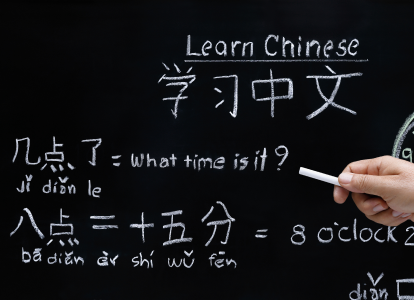 Learn Chinese
学习中文
几点了 = What time is it?
jǐ diǎn le
八点二十五分 = 8 o'clock 2
bā diǎn èr shí wǔ fēn
diǎn